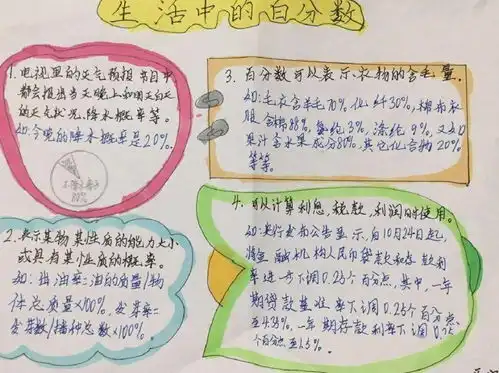 生活中的百分数
1.电视里的天气预报节目中
都会报出当天晚上和明天白天
的天气状况、降水概率等。
如:今晚的降水概率是20%。
80%
2.表示某物某性质的能力大小
或具有某性质的概率。
如:出油率=油的质量/物
体总质量×100%,发芽率=
发芽数/播种总数×100%。
3.百分数可以表示衣物的含毛量。
如:毛衣含羊毛70%,化纤30%,棉布衣
服含棉88%,氨纶3%,涤纶9%,又如
果汁含水果成分80%,其它化合物20%
等等。
4.可以计算利息、税款、利润时使用。
如:央行发布公告显示,自10月24日起,
将金融机构人民币贷款和存款利
率进一步下调0.25个百分点,其中,一年
期贷款基准率下调0.25个百分点
至4.35%,一年期存款利率下调0.25
个百分点至1.5%。